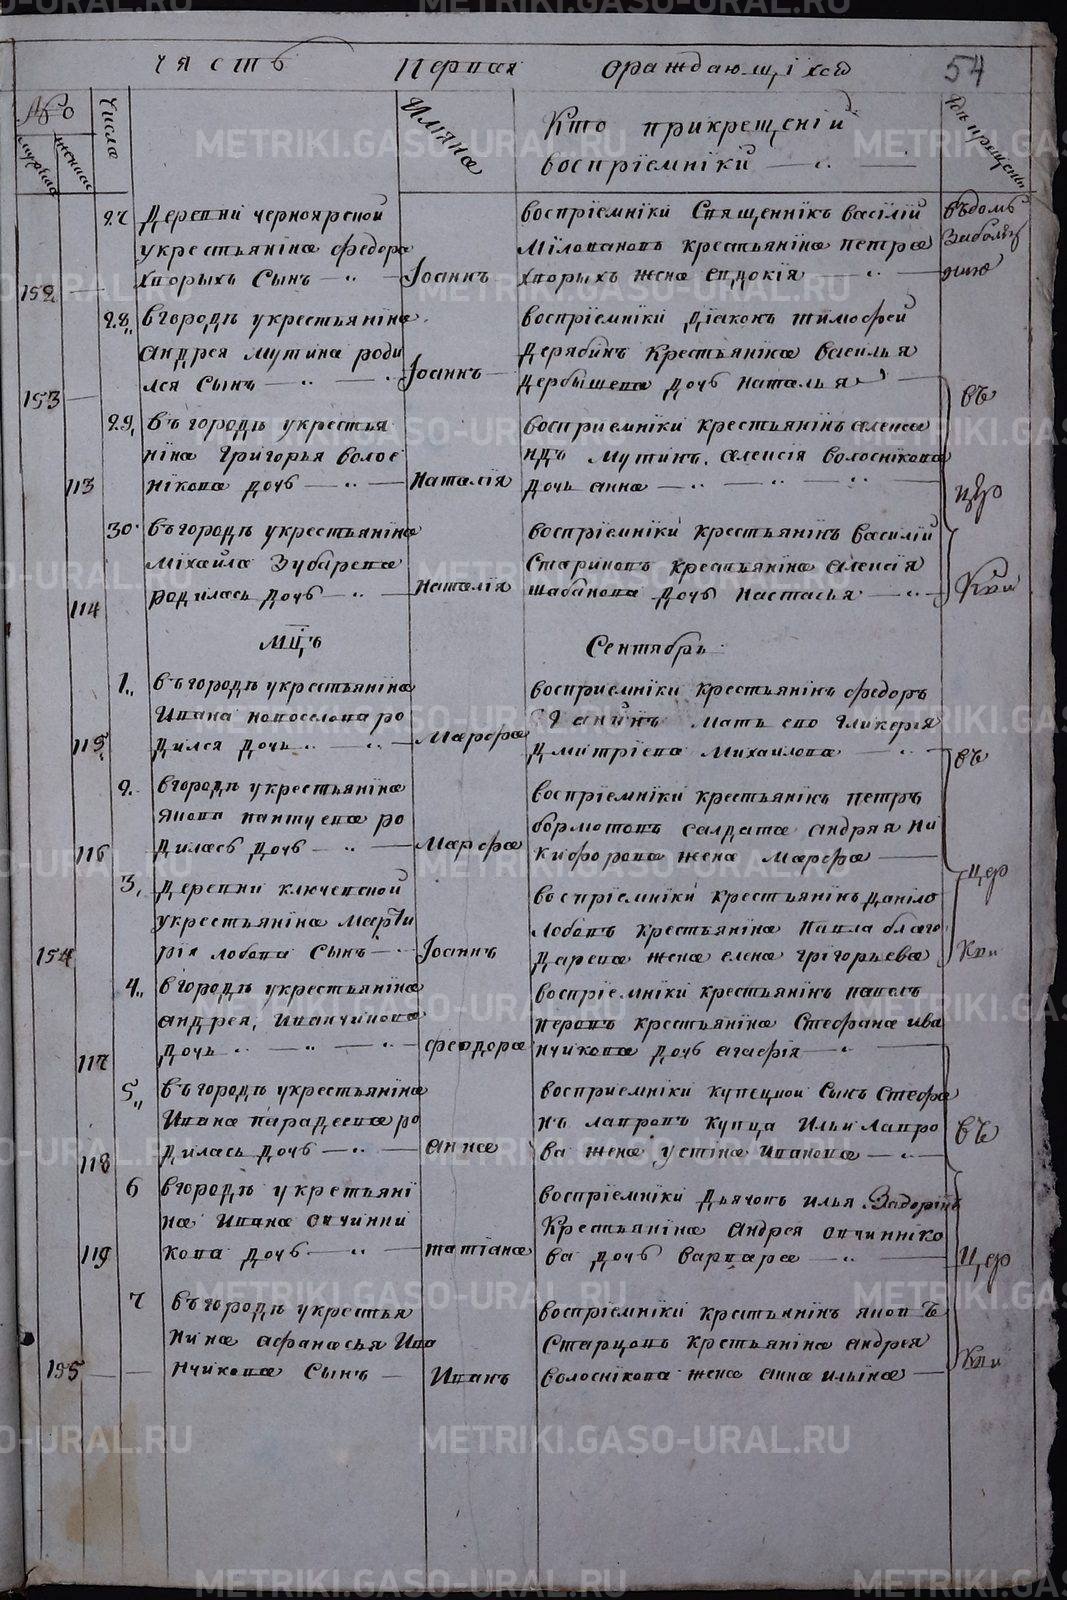 часть первая ораждающихся 54
№
мужеска
женска
Числа
Имяна
Кто прикрещении
воспрiемнiки
где крещены
152
27 Деревни черноярской
укрестьянiна федора
хворыхъ Сынъ
Iоаннъ
воспрiемнiки Священнiкъ василiй
Мiловановъ крестьянiна петра
хворыхъ жена евдокiя
въдомъ
Заболез
нию
153
28 вгородѣ укрестьянiна
андрея мутина роди
лся Сынъ
Iоаннъ
воспрiемнiки дiаконъ тимофей
дерябинъ крестьянiна василья
дербышева дочь наталья
113
29 въгородѣ укрестья
нiна григорья волос
нiкова дочь
наталiя
воспрiемнiки крестьянiнъ алекса
ндъ мутинъ. алексiя волоснiкова
дочь анна
въ
цер
114
30 въгородѣ укрестьянiна
мiхайла Зубарева
родилась дочь
наталiя
воспрiемнiки крестьянiнъ василiй
Стариковъ крестьянiна алексiя
шабанова дочь настасья
Кви
мцъ Сентябрь
115
1 въгородѣ укрестьянiна
ивана новоселова ро
дился дочь
марфа
воспрiемнiки крестьянiнъ федоръ
мать ево гликерiя
дмитрiева михаилова
116
2 вгородѣ укрестьянiна
якова пантуева ро
дилась дочь
марфа
воспрiемнiки крестьянiнъ петръ
бормотовъ салдата андрея ни
кифорова жена марфа
въ
154
3 деревни ключевской
укрестьянiна марти
рiя лобова Сынъ
Iоаннъ
воспрiемнiки крестьянiнъ данiло
лобовъ крестьянiна павла благо
дарева жена елена грiгорьева
цер
Кви
117
4 вгородѣ укрестьянiна
андрея, иванчикова
дочь
феодора
воспрiемнiки крестьянiнъ павелъ
неровъ крестьянiна Стефана ива
нчикова дочь агафiя
118
5 въгородѣ укрестьянiна
ивана парадеева ро
дилась дочь
анна
воспрiемнiки купецкой сынъ Стефа
нъ лапровъ купца ильи лапро
ва жена устiна иванова
въ
119
6 вгородѣ укретьянi
на ивана овчинни
кова дочь
татiана
воспрiемнiки дьячокъ илья Задорiнъ
крестьянiна андрея овчиннiко
ва дочь варвара
цер
155
7 въгородѣ укрестья
нина афанасья ива
нчикова Сынъ
иванъ
воспрiемнiки крестьянiнъ яковъ
Старцовъ крстьянiна андрея
волоснiкова жена анна ильiна
Кви